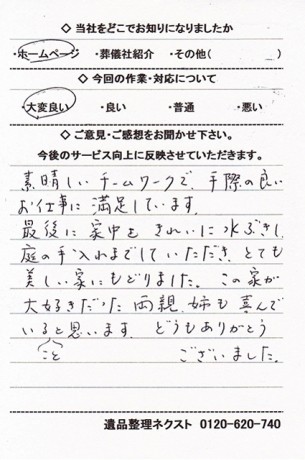 ◇ 当社をどこでお知りになりましたか
・ホームページ ・葬儀社紹介 ・その他( )
◇ 今回の作業・対応について
・大変良い ・良い ・普通 ・悪い
◇ ご意見・ご感想をお聞かせ下さい。
今後のサービス向上に反映させていただきます。
素晴しいチームワークで、手際の良い
お仕事に満足しています。
最後に家中をきれいに水ぶきし、
庭の手入れまでしていただき、とても
美しい家にもどりました。この家が
大好きだった両親、姉も喜んで
いると思います。どうもありがとう
こと ございました。
遺品整理ネクスト 0120-620-740